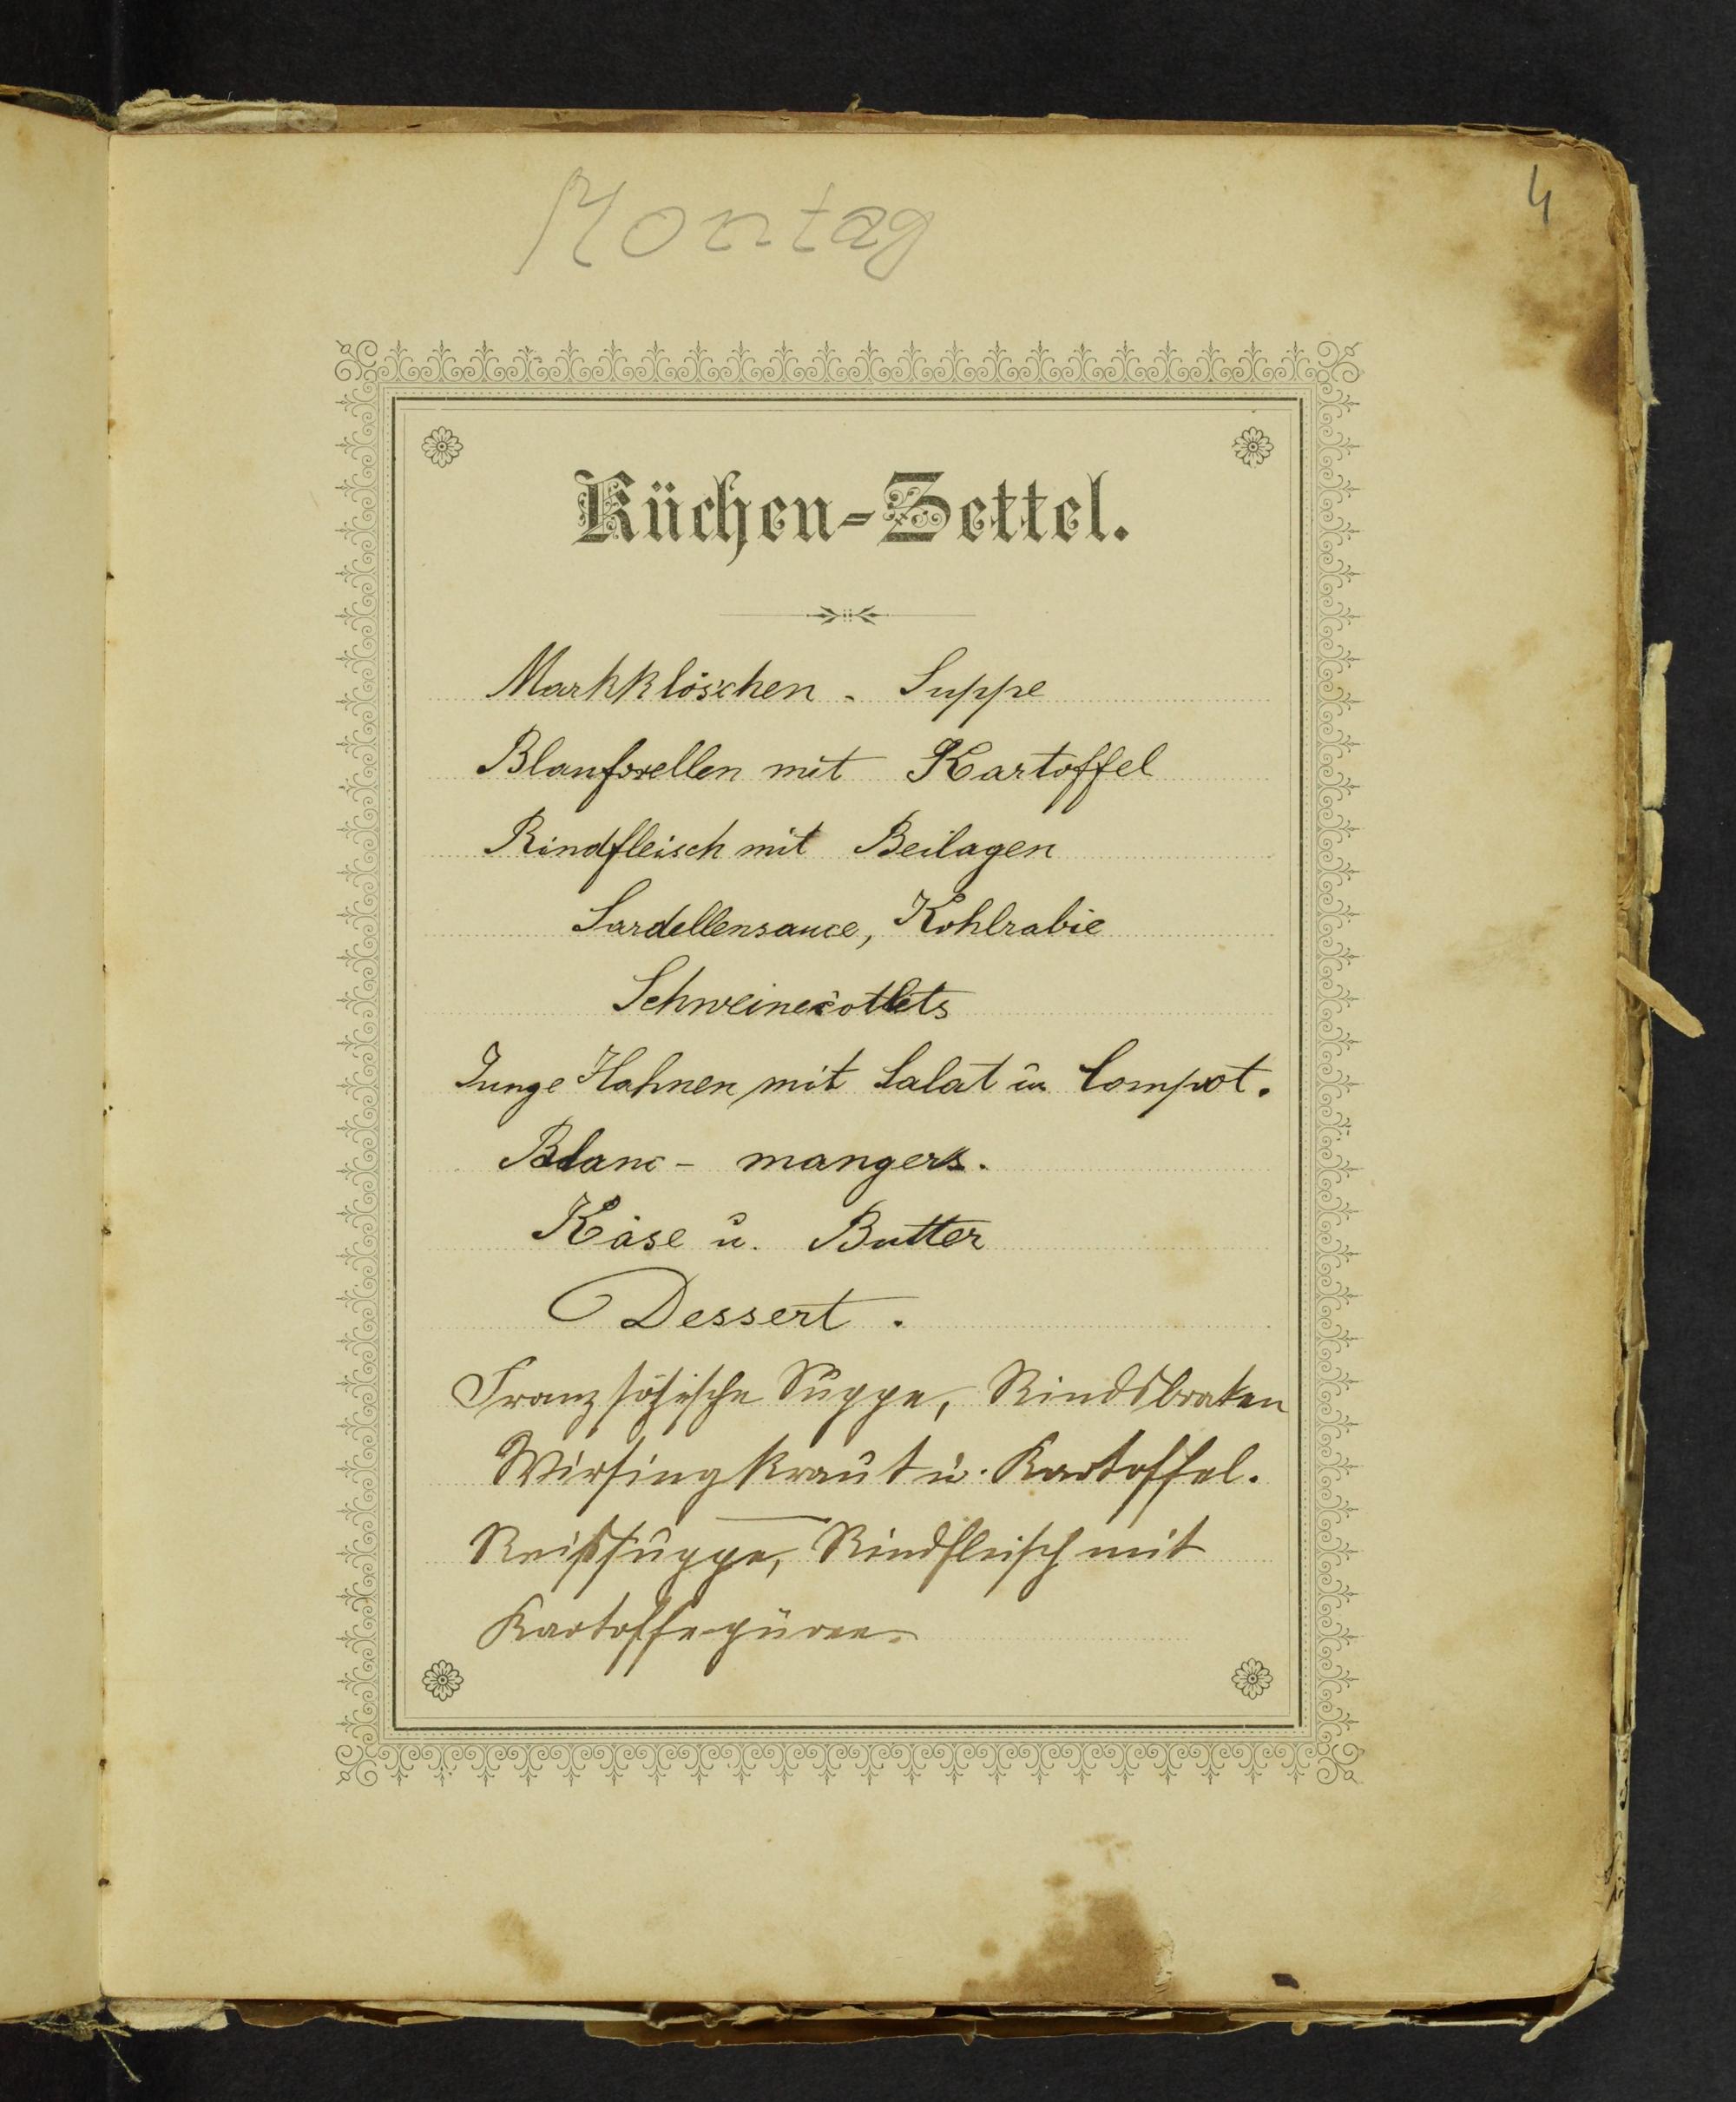 4
Montag
Küchen-Zettel.
Markklöschen - Suppe
Blauforellen mit Kartoffel
Rindfleisch mit Beilagen
Sardellensauce, Kohlrabie
Schweinecotlets
Junge Hahnen mit Salat u Compot.
Blanc - mangers.
Käse u. Butter
Dessert.
Franzsösische Suppe, Rindsbraten
Wirsingkraut u. Kartoffel.
Reißsuppe, Rindfleisch mit
Kartoffepüree.